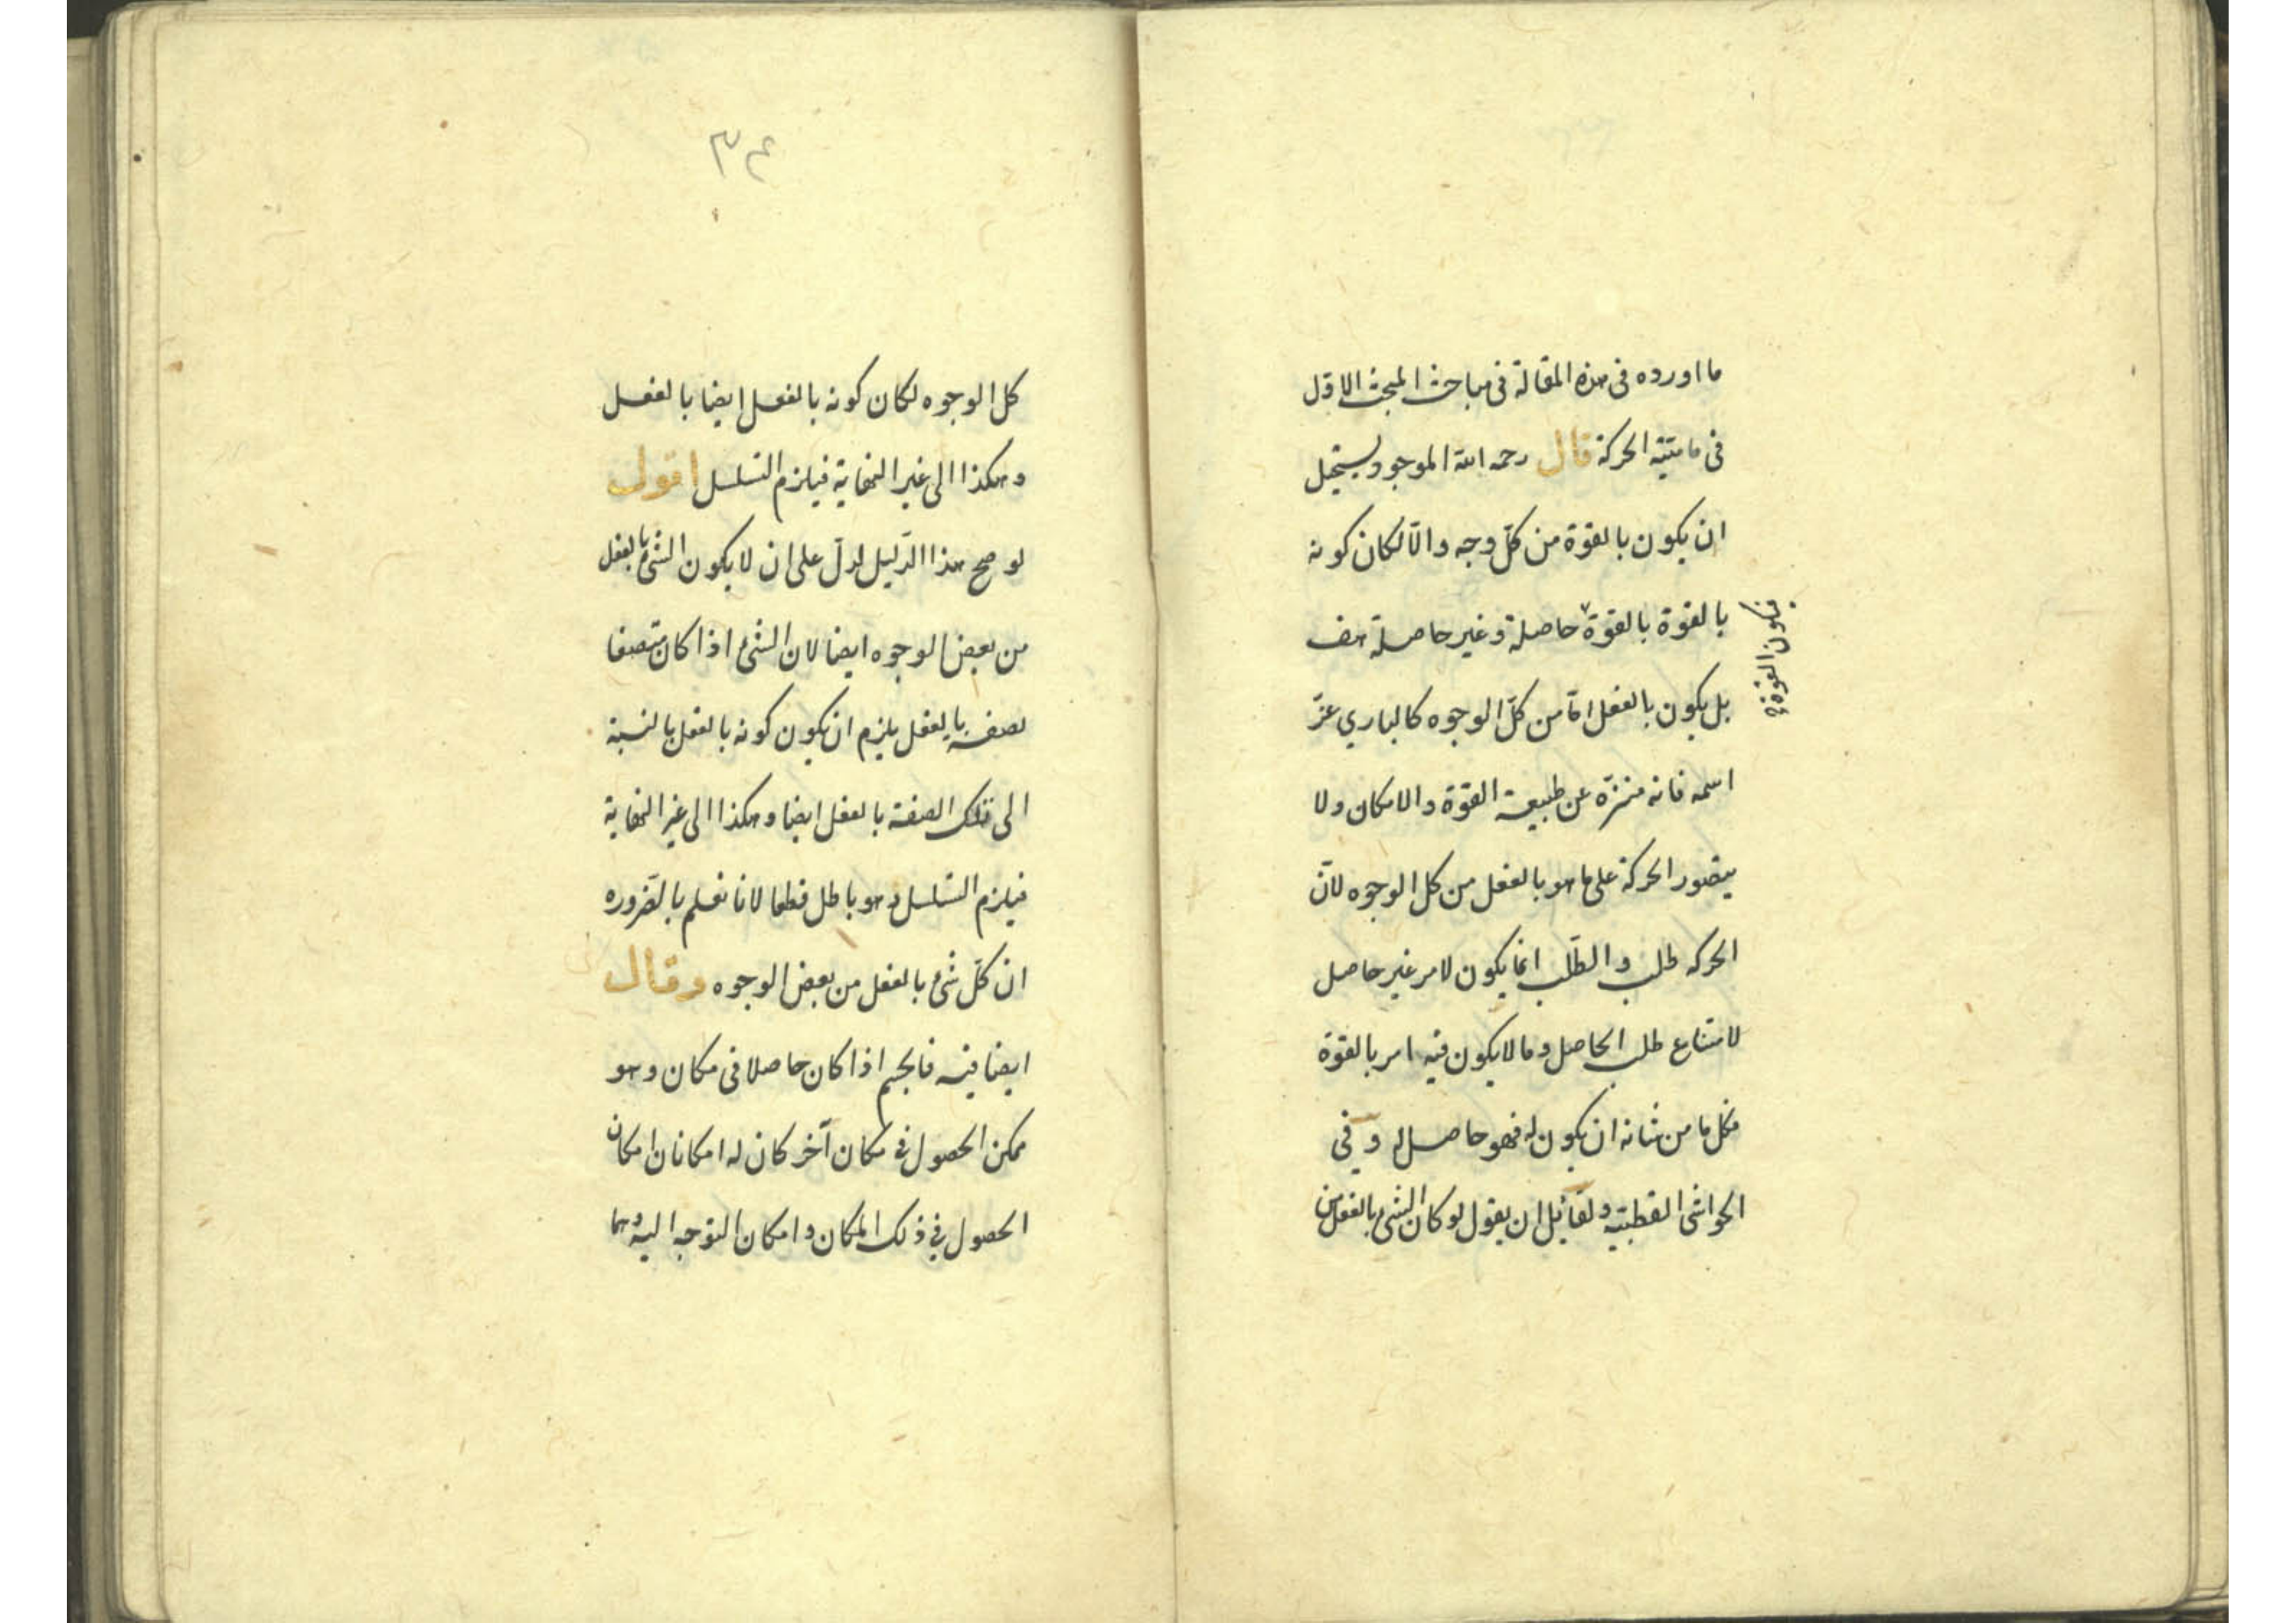 ما اورده فى هذه المقالة فى مباحث المبحث الاوّل
فى ماهيّة الحركة قال رحمه الله الموجود يستحيل
ان يكون بالقوّة من كلّ وجه والّا لكان كونه
بالقوة بالقوّة حاصلة وغير حاصلة هف
فيكون القوة
بل يكون بالفعل امّا من كلّ الوجوه كالباري عزّ
اسمه فانه منزّه عن طبيعة القوّة والامكان ولا
يتصور الحركة على ما هو بالفعل من كل الوجوه لانّ
الحركه طلب والطّلب انما يكون لامر غير حاصل
لامتناع طلب الحاصل وما لا يكون فيه امر بالقوّة
فكل ما من شانه ان يكون له فهو حاصل له وفى
الحواشى القطبيّه ولقائل ان يقول لو كان الشئ بالفعل من
٣٤
كل الوجوه لكان كونه بالفعل ايضا بالفعل
وهكذا الى غير النهاية فيلزم التسلسل اقول
لو صح هذا الدّليل لدلّ على ان لا يكون الشئ بالفعل
من بعض الوجوه ايضا لان الشئ اذا كان متّصفا
بصفة بالفعل يلزم ان يكون كونه بالفعل بالنسبة
الى تلك الصفة بالفعل ايضا وهكذا الى غير النهاية
فيلزم التسلسل وهو باطل قطعا لانا نعلم بالضّروره
ان كلّ شئ بالفعل من بعض الوجوه وقال
ايضا فيه فالجسم اذا كان حاصلا فى مكان وهو
ممكن الحصول فى مكان آخر كان له امكانان امكان
الحصول فى ذلك المكان وامكان التوجه اليه وهما